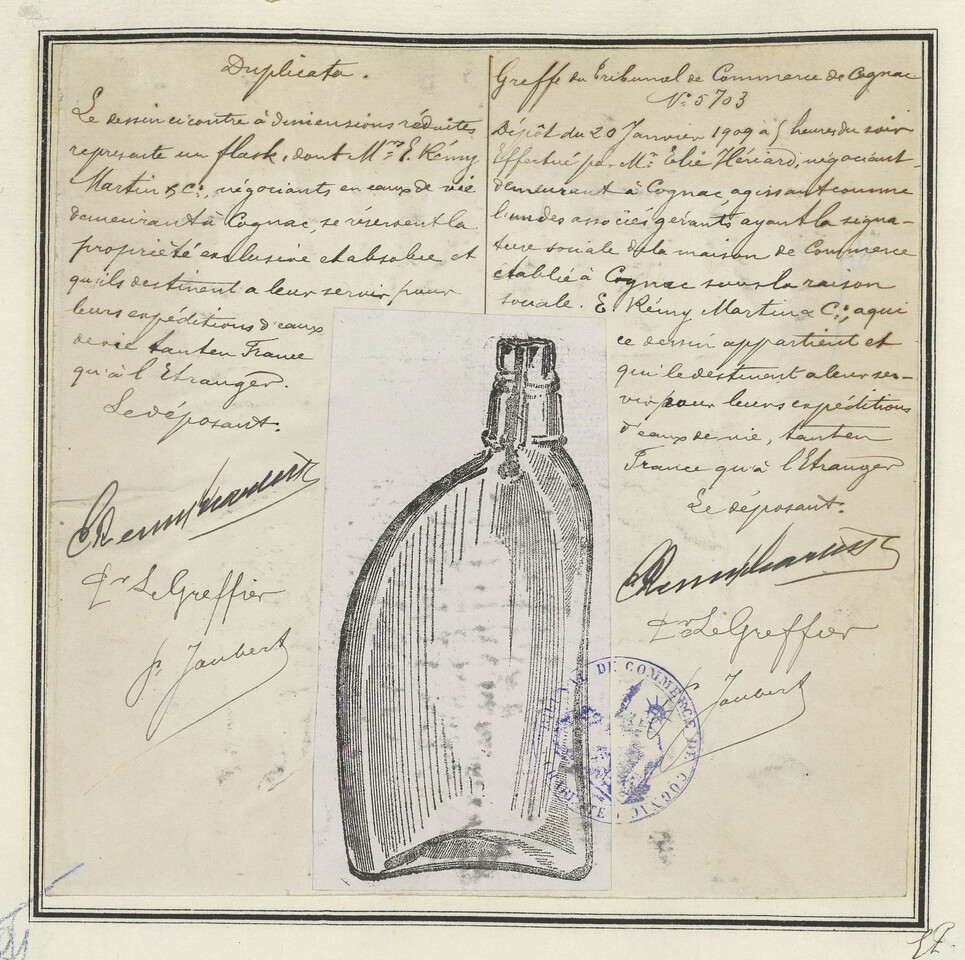 Duplicata.
Le dessin ci contre à dimensions réduites
représente un flask, dont Mrs E. Rémy
Martin & Cie, négociants en eaux de vie
demeurant à Cognac, se réservent la
propriété exclusive et absolue et
qu'ils destinent a leur servir, pour
leurs expéditions d'eaux
de vie tant en France
qu'à l'Etranger.
Le déposant.
E Remy Martin & Co
Pr Le Greffier
P. Jaubert
Greffe du Tribunal de Commerce de Cognac
No 5703
Dépôt du 20 Janvier 1909 à 5 heures du soir
Effectué par Mr Elié Hériard, négociant
demeurant à Cognac, agissant comme
l'un des associés gérants ayant la signa-
ture sociale de la maison de Commerce
établie à Cognac sous la raison
sociale. E. Rémy Martin & Cie, a qui
ce dessin appartient et
qui le destinent a leur ser-
vir pour leurs expéditions
d'eaux de vie, tant en
France qu'à l'Etranger
Le déposant.
E Remy Martin & Co
Pr Le Greffier
P. Jaubert
TRIBUNAL DE COMMERCE DE COGNAC